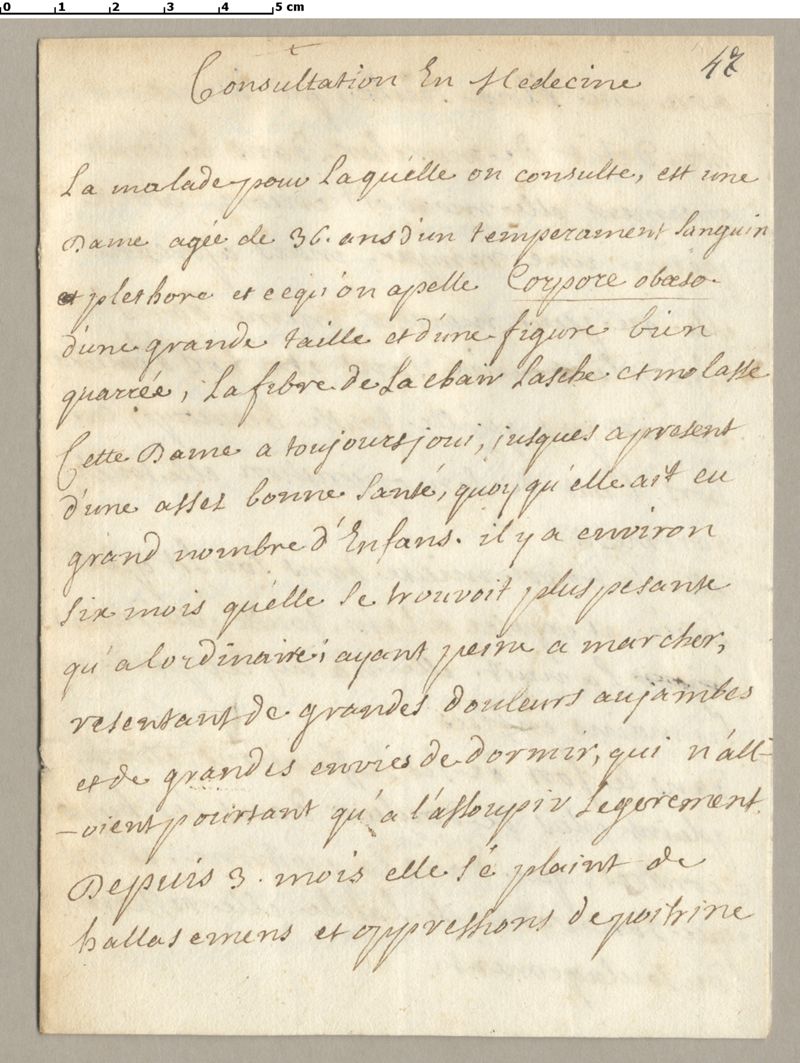 0 1 2 3 4 5 cm
47
Consultation En Medecine
La malade pour Laquélle on consulte, est une
Dame agée de 36. ans d'un temperament sanguin
et plethore et cequ'on apelle Corpore obæso
d'une grande taille et d'une figure bien
quarrée, La fibre de La chair Lasche et molasse
Cette Dame a toujours joui, jusques apresent
d'une assez bonne santé, quoyqu'elle ait eu
grand nombre d'Enfans. il y a environ
six mois qu'elle se trouvoit plus pesante
qu'a lordinaire; ayant peine a marcher,
resentant de grandes douleurs aujambes
et de grandes envies de dormir, qui n'all-
-oient pourtant qu'a l'assoupir Legerement.
Depuis 3. mois elle sé plaint de
hallasemens et oppressions de poitrine